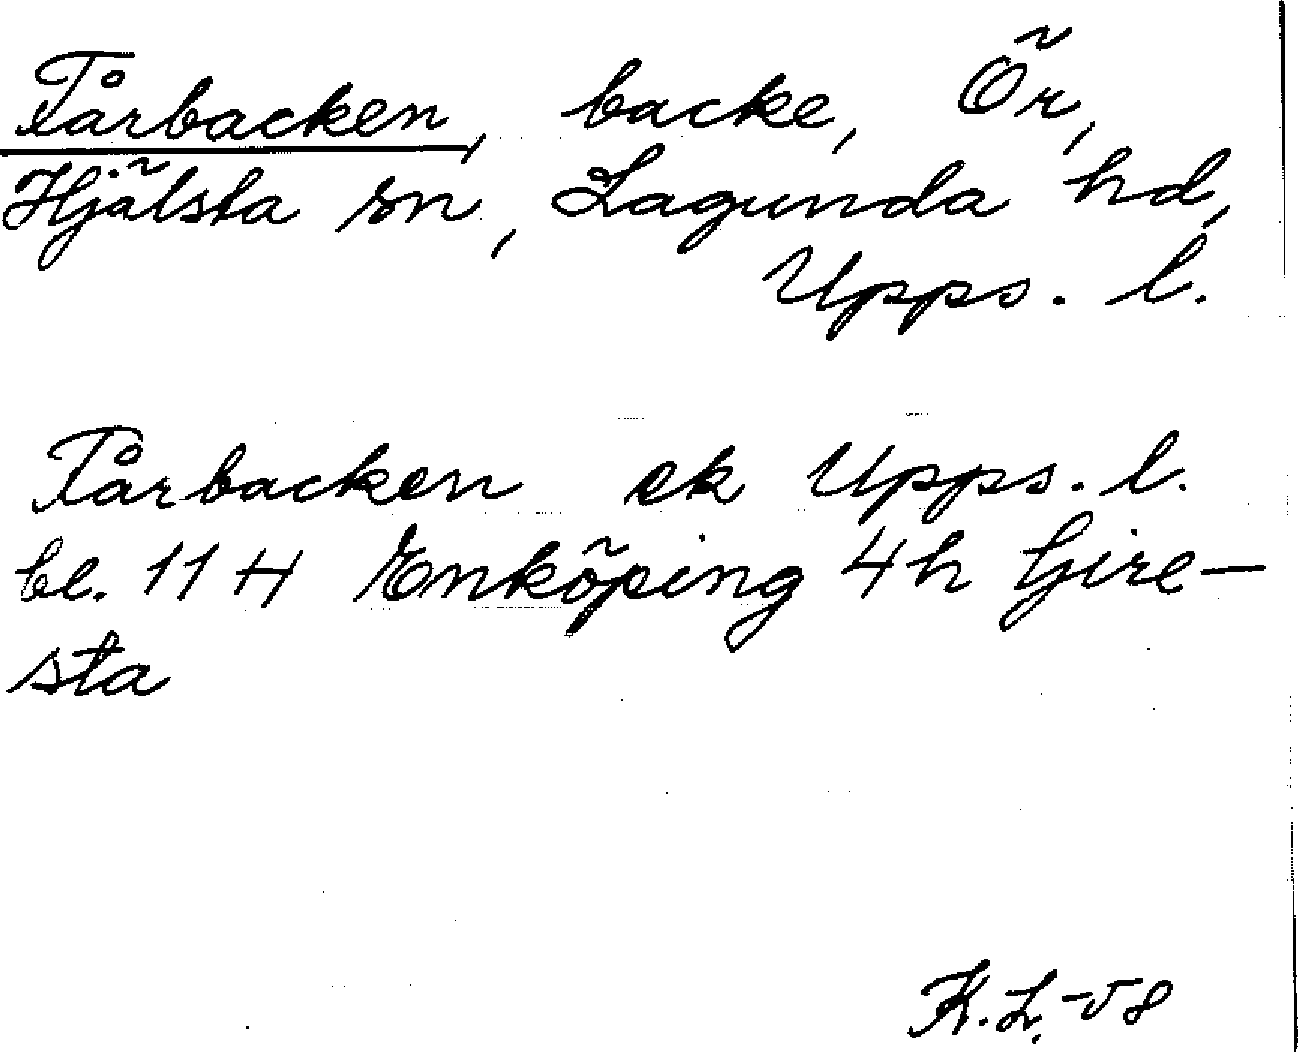 Tårbacken, backe, Ör,
Hjälsta sn, Lagunda hd,
Upps. l.
Tårbacken ek Upps. l.
bl. 11 H Enköping 4h Gire-
sta
K.L. -58